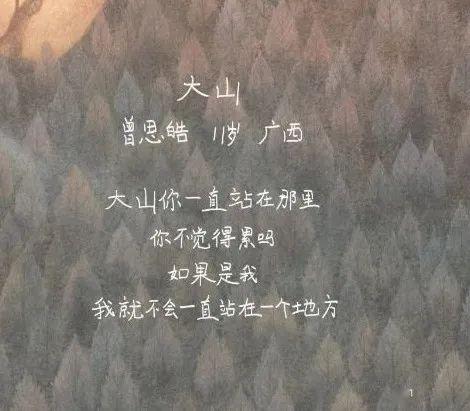 大山
曾思皓 11岁 广西
大山你一直站在那里
你不觉得累吗
如果是我
我就不会一直站在一个地方
1